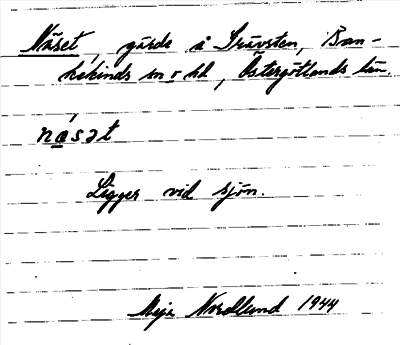 Näset, gärde å Strävsten, Ban-
kekinds sn o hd, Östergötlands län.
nä́sət
Ligger vid sjön.
Maja Nordlund 1944